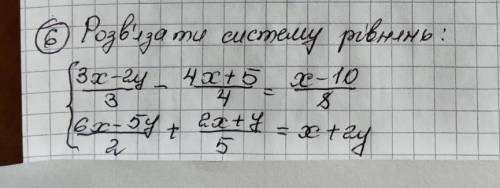 6 Розв'язати систему рівнянь:
{ (3x-2y)/3 - (4x+5)/4 = (x-10)/8
(6x-5y)/2 + (2x+y)/5 = x+2y